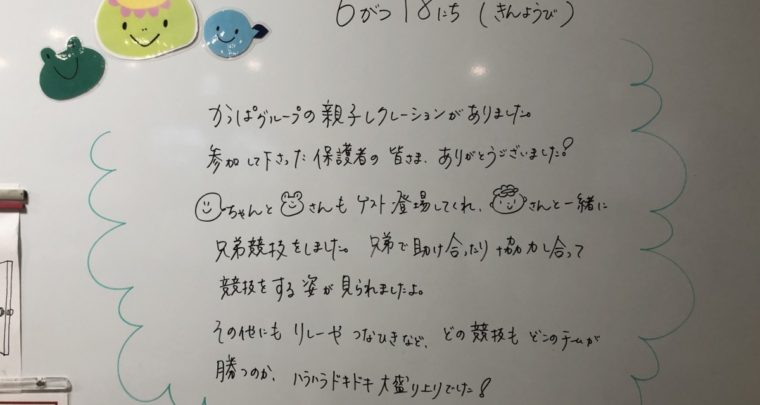 6がつ18にち (きんようび)
かっぱグループの親子レクレーションがありました。
参加して下さった保護者の皆さま、ありがとうございました!
ちゃんと さんも ゲスト登場してくれ、 さんと一緒に
兄弟競技をしました。兄弟で助け合ったり協力し合って
競技をする姿が見られましたよ。
その他にもリレーやつなひきなど、どの競技もどこのチームが
勝つのか、ハラハラドキドキ大盛り上りでした!